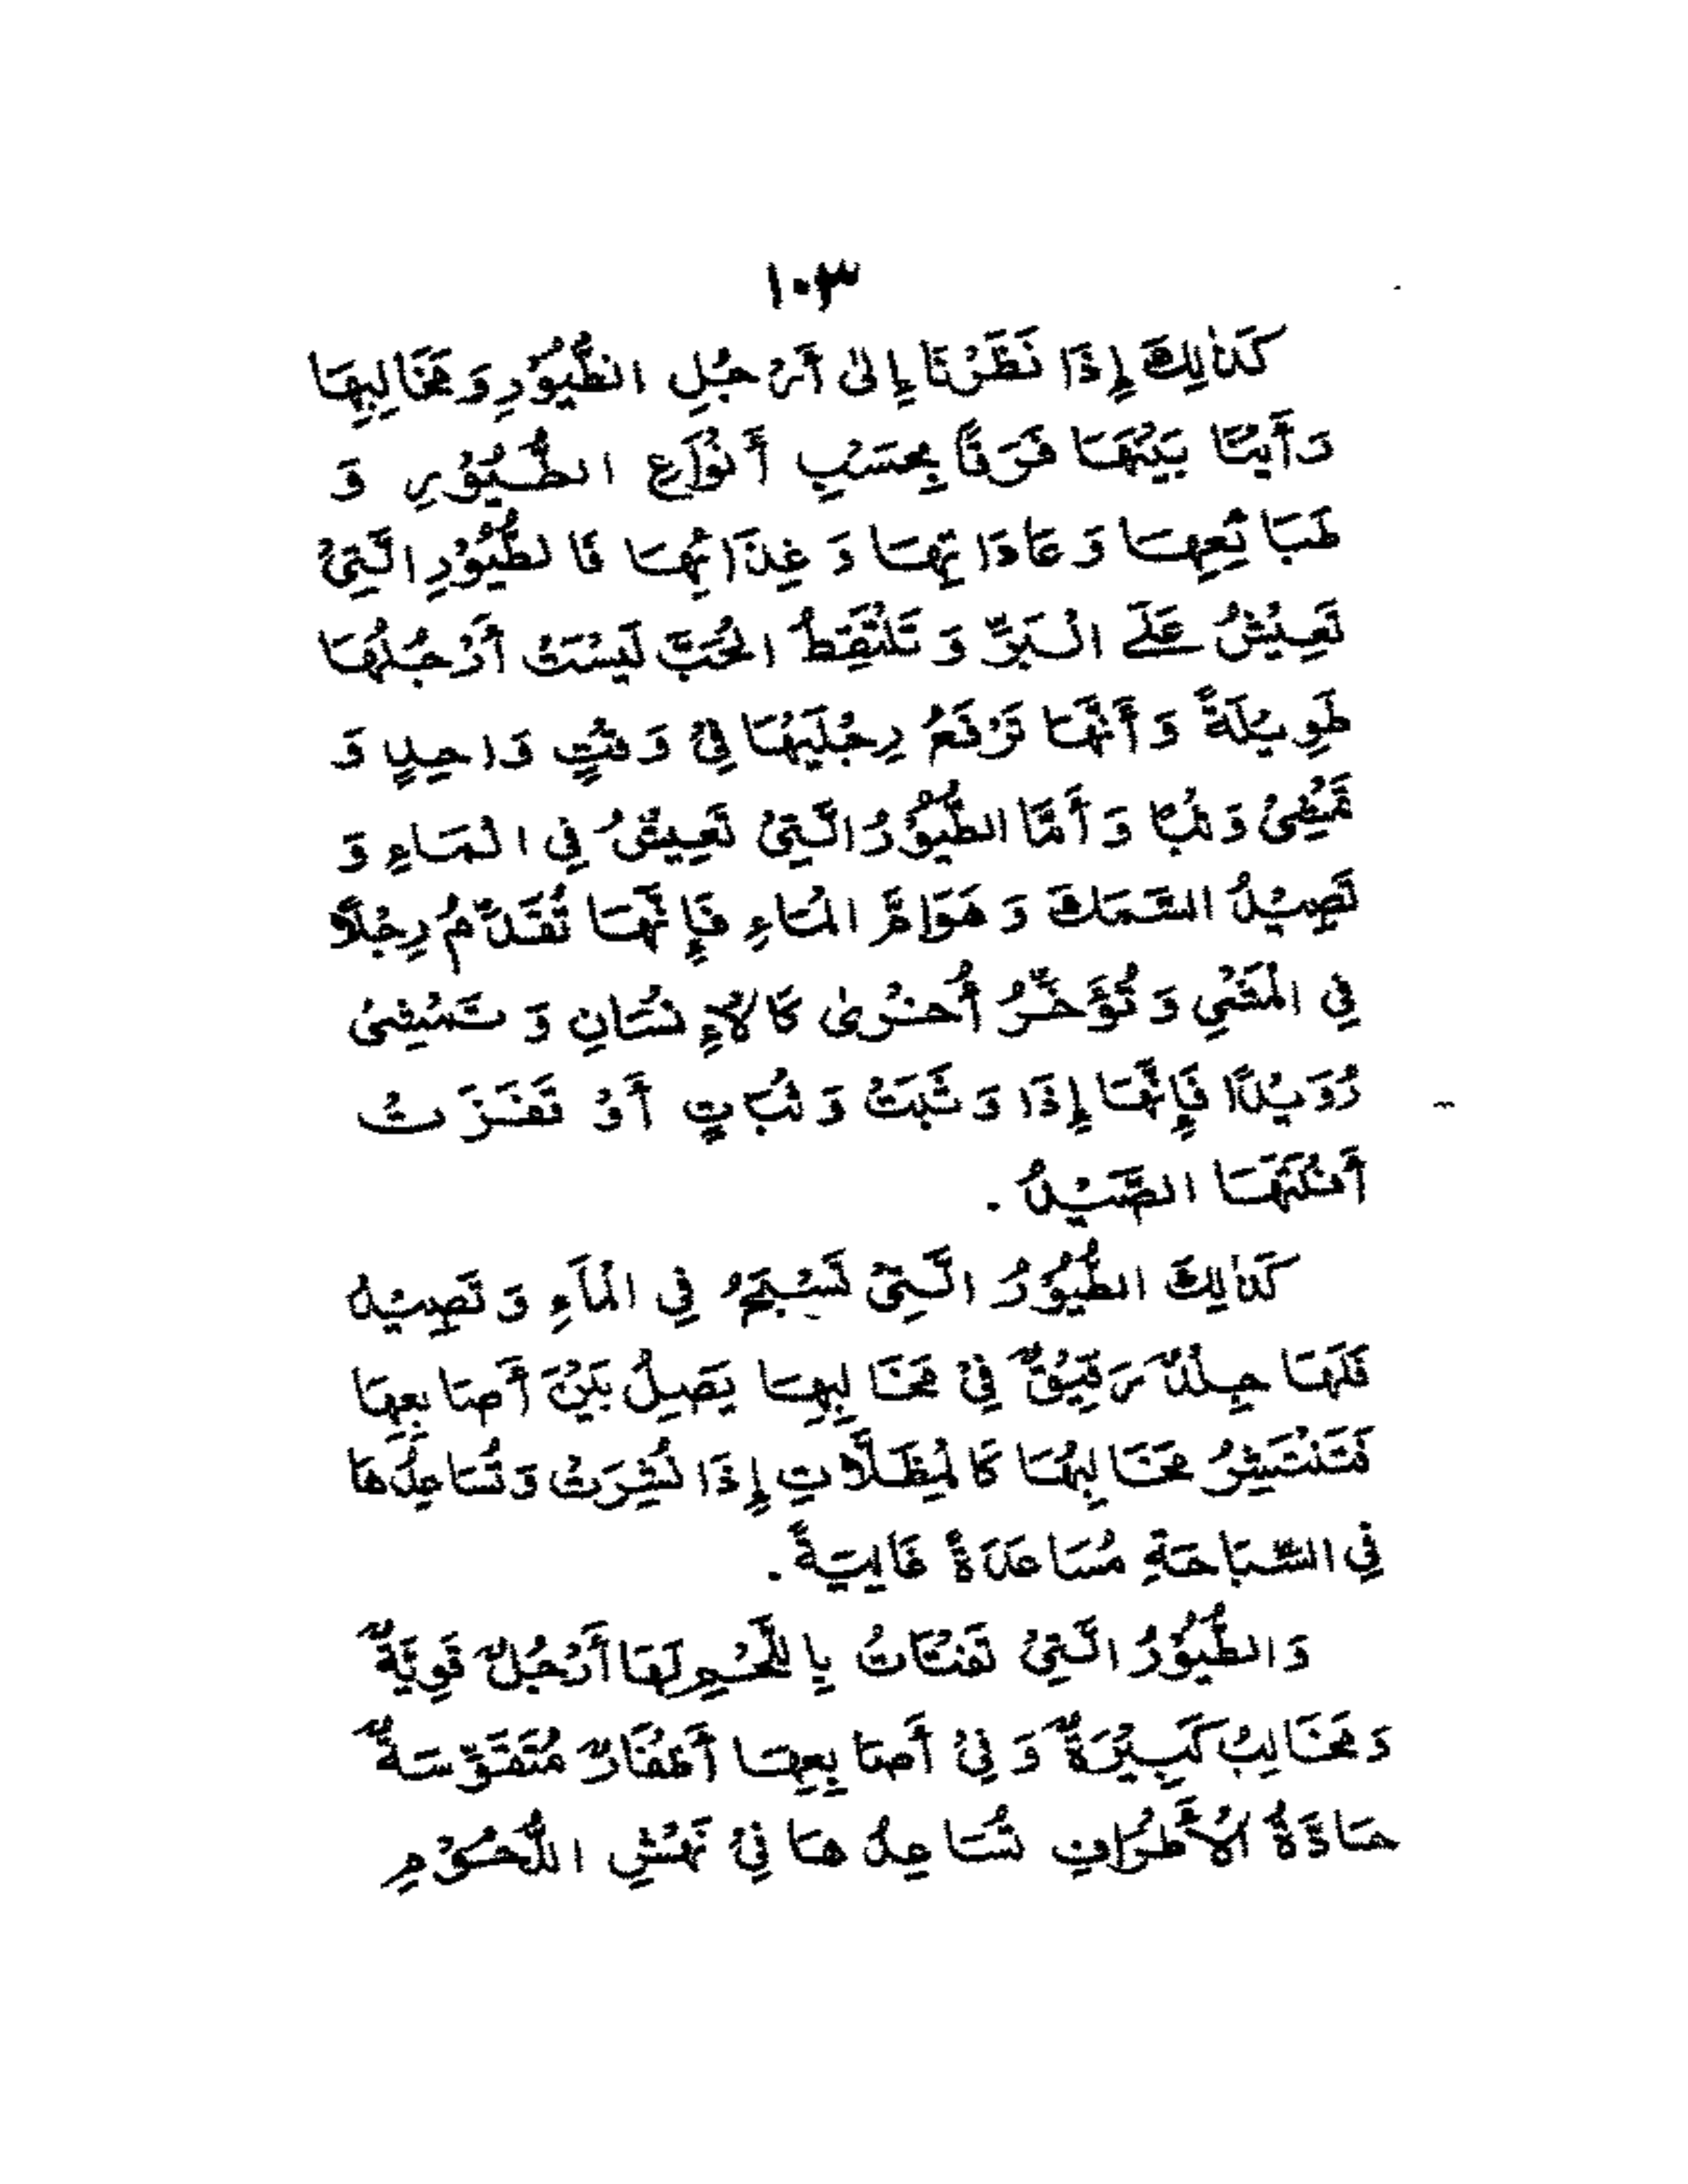 ١٠٣
كَذٰلِكَ إِذَا نَظَرْنَا إِلىٰ أَرْجُلِ الطُّيُوْرِ وَ مَخَالِبِهَا
رَأَيْنَا بَيْنَهَا فَرَقًا بِحَسَبِ أَنْوَاعِ الطُّيُوْرِ وَ
طَبَائِعِهَا وَ عَادَاتِهَا وَ غِذَائِهَا فَالطُّيُوْرِ الَّتِيْ
تَعِيْشُ عَلَى الْبَرِّ وَ تَلْتَقِطُ الْحَبَّ لَيْسَتْ أَرْجُلُهَا
طَوِيْلَةً وَ أَنَّهَا تَرْفَعُ رِجْلَيْهَا فِيْ وَقْتٍ وَاحِدٍ وَ
تَمْشِيْ وَثْبًا وَ أَمَّا الطُّيُوْرُ الَّتِيْ تَعِيْشُ فِي الْمَاءِ وَ
تَصِيْدُ السَّمَكَ وَ هَوَامَّ الْمَاءِ فَإِنَّهَا تُقَدِّمُ رِجْلًا
فِي الْمَشْيِ وَ تُؤَخِّرُ أُخْرىٰ كَالْإِنْسَانِ وَ تَمْشِيْ
رُوَيْدًا فَإِنَّهَا إِذَا وَثَبَتْ وَثَبَاتٍ أَوْ قَفَزَتْ
أَفْلَتَهَا الصَّيْدُ .
كَذٰلِكَ الطُّيُوْرُ الَّتِيْ تَسْبَحُ فِي الْمَآءِ وَ تَصِيْدُ
فَلَهَا جِلْدٌ رَقِيْقٌ فِيْ مَخَالِبِهَا يَصِلُ بَيْنَ أَصَابِعِهَا
فَتَنْتَشِرُ مَخَالِبُهَا كَالْمِظَلَّاتِ إِذَا نُشِرَتْ وَ تُسَاعِدُهَا
فِي السِّبَاحَةِ مُسَاعَدَةً غَالِيَةً .
وَالطُّيُوْرُ الَّتِيْ تَقْتَاتُ بِاللَّحْمِ لَهَا أَرْجُلٌ قَوِيَّةٌ
وَ مَخَالِبُ كَبِيْرَةٌ وَ فِيْ أَصَابِعِهَا أَظْفَارٌ مُتَقَوِّسَةٌ
حَادَّةُ الْأَطْرَافِ تُسَاعِدُهَا فِيْ نَهْشِ اللُّحُوْمِ